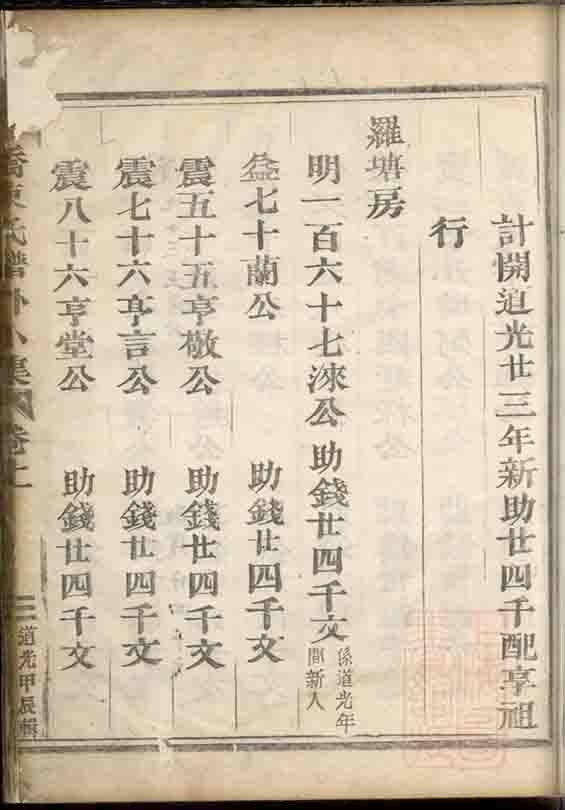 計開道光廿三年新助廿四千配享祖
行
羅塘房
明一百六十七淶公 助錢廿四千文 係道光年間新入
益七十蘭公 助錢廿四千文
震五十五亨敬公 助錢廿四千文
震七十六亨言公 助錢廿四千文
震八十六亨堂公 助錢廿四千文
橋東氏譜外八集 卷上 三 道光甲辰輯